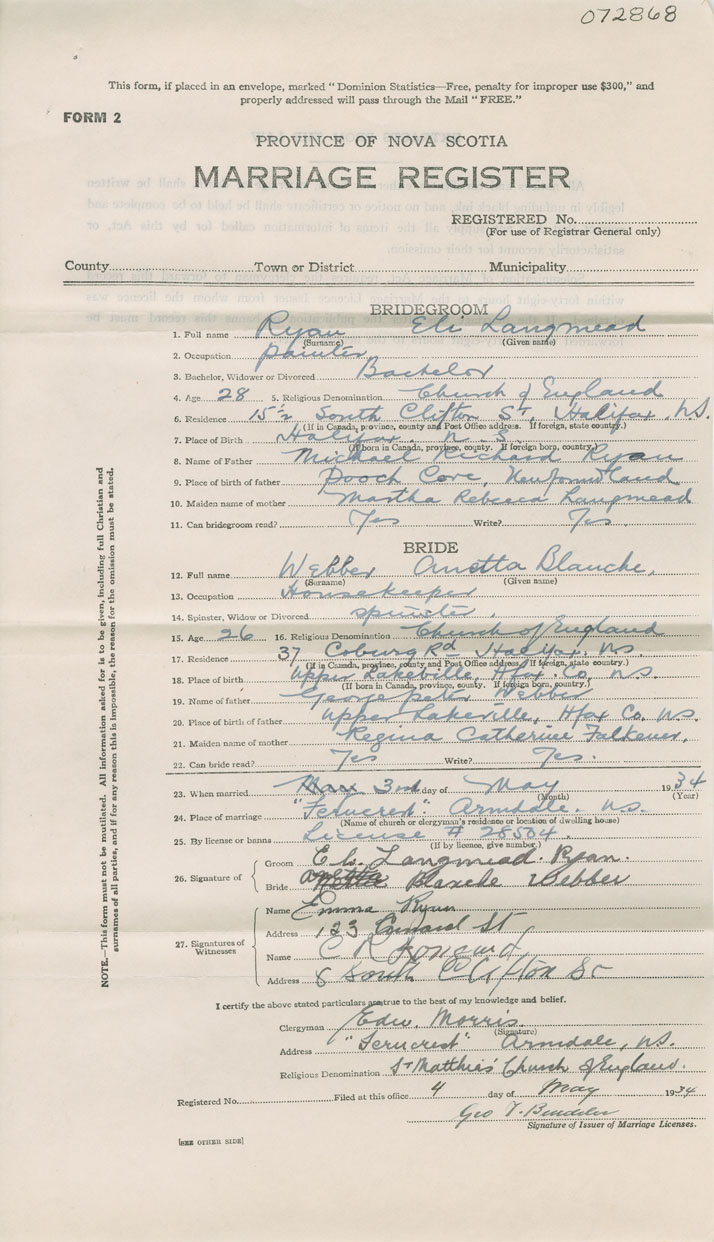 072868
This form, if placed in an envelope, marked "Dominion Statistics—Free, penalty for improper use $300," and
properly addressed will pass through the Mail "FREE."
FORM 2
PROVINCE OF NOVA SCOTIA
MARRIAGE REGISTER
REGISTERED No.
(For use of Registrar General only)
County Town or District Municipality
BRIDEGROOM
1. Full name Ryan Eli Langmead
(Surname) (Given name)
2. Occupation painter
3. Bachelor, Widower or Divorced Bachelor
4. Age 28 5. Religious Denomination Church of England
6. Residence 15½ South Clifton St, Halifax, N.S.
(If in Canada, province, county and Post Office address. If foreign, state country.)
7. Place of Birth Halifax, N.S.
(If born in Canada, province, county. If foreign born, country.)
8. Name of Father Michael Richard Ryan
9. Place of birth of father Pooch Cove, Newfoundland
10. Maiden name of mother Martha Rebecca Langmead
11. Can bridegroom read? Yes Write? Yes.
BRIDE
12. Full name Webber Anetta Blanche,
(Surname) (Given name)
13. Occupation Housekeeper
14. Spinster, Widow or Divorced spinster.
15. Age 26 16. Religious Denomination Church of England
17. Residence 37 Coburg Rd Halifax, N.S.
(If in Canada, province, county and Post Office address. If foreign, state country.)
18. Place of birth Upper Lakeville, Hfax Co. N.S.
(If born in Canada, province, county. If foreign born, country.)
19. Name of father George peter Webber
20. Place of birth of father Upper Lakeville, Hfax Co. N.S.
21. Maiden name of mother Regina Catherine Falkener,
22. Can bride read? Yes Write? Yes.
23. When married 3rd day of May 1934
(Month) (Year)
24. Place of marriage "Ferncrest". Armdale. N.S.
(Name of church or clergyman's residence or location of dwelling house)
25. By license or banns License # 28504.
(If by licence, give number.)
26. Signature of
Groom Eli Langmead Ryan.
Bride Blanche Webber
27. Signatures of
Witnesses
Name Emma Ryan
Address 123 St
Name C R
Address 8 South Clifton St
I certify the above stated particulars are true to the best of my knowledge and belief.
Clergyman Edw. Morris
(Signature)
Address "Ferncrest" Armdale, N.S.
Religious Denomination St Matthias' Church of England.
Registered No. Filed at this office 4 day of May 1934
Geo
Signature of Issuer of Marriage Licenses.
[SEE OTHER SIDE]
NOTE.—This form must not be mutilated. All information asked for is to be given, including full Christian and
surnames of all parties, and if for any reason this is impossible, the reason for the omission must be stated.